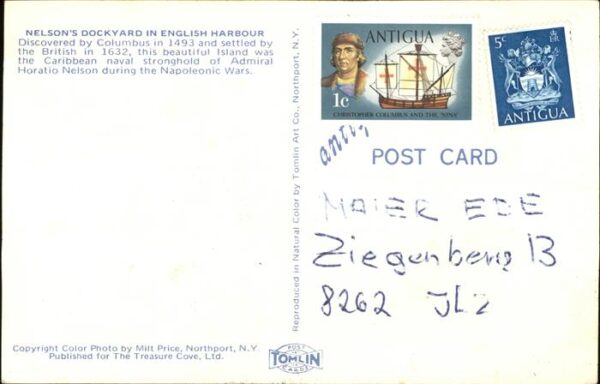 NELSON'S DOCKYARD IN ENGLISH HARBOUR
Discovered by Columbus in 1493 and settled by
the British in 1632, this beautiful Island was
the Caribbean naval stronghold of Admiral
Horatio Nelson during the Napoleonic Wars.
Copyright Color Photo by Milt Price, Northport, N.Y.
Published for The Treasure Cove, Ltd.
Reproduced in Natural Color by Tomlin Art Co., Northport, N.Y.
POST
TOMLIN
CARDS
ANTIGUA
1c
CHRISTOPHER COLUMBUS AND THE "NINA"
5c
ANTIGUA
POST CARD
MAIER EDE
Ziegenberg 13
8262 Jlz